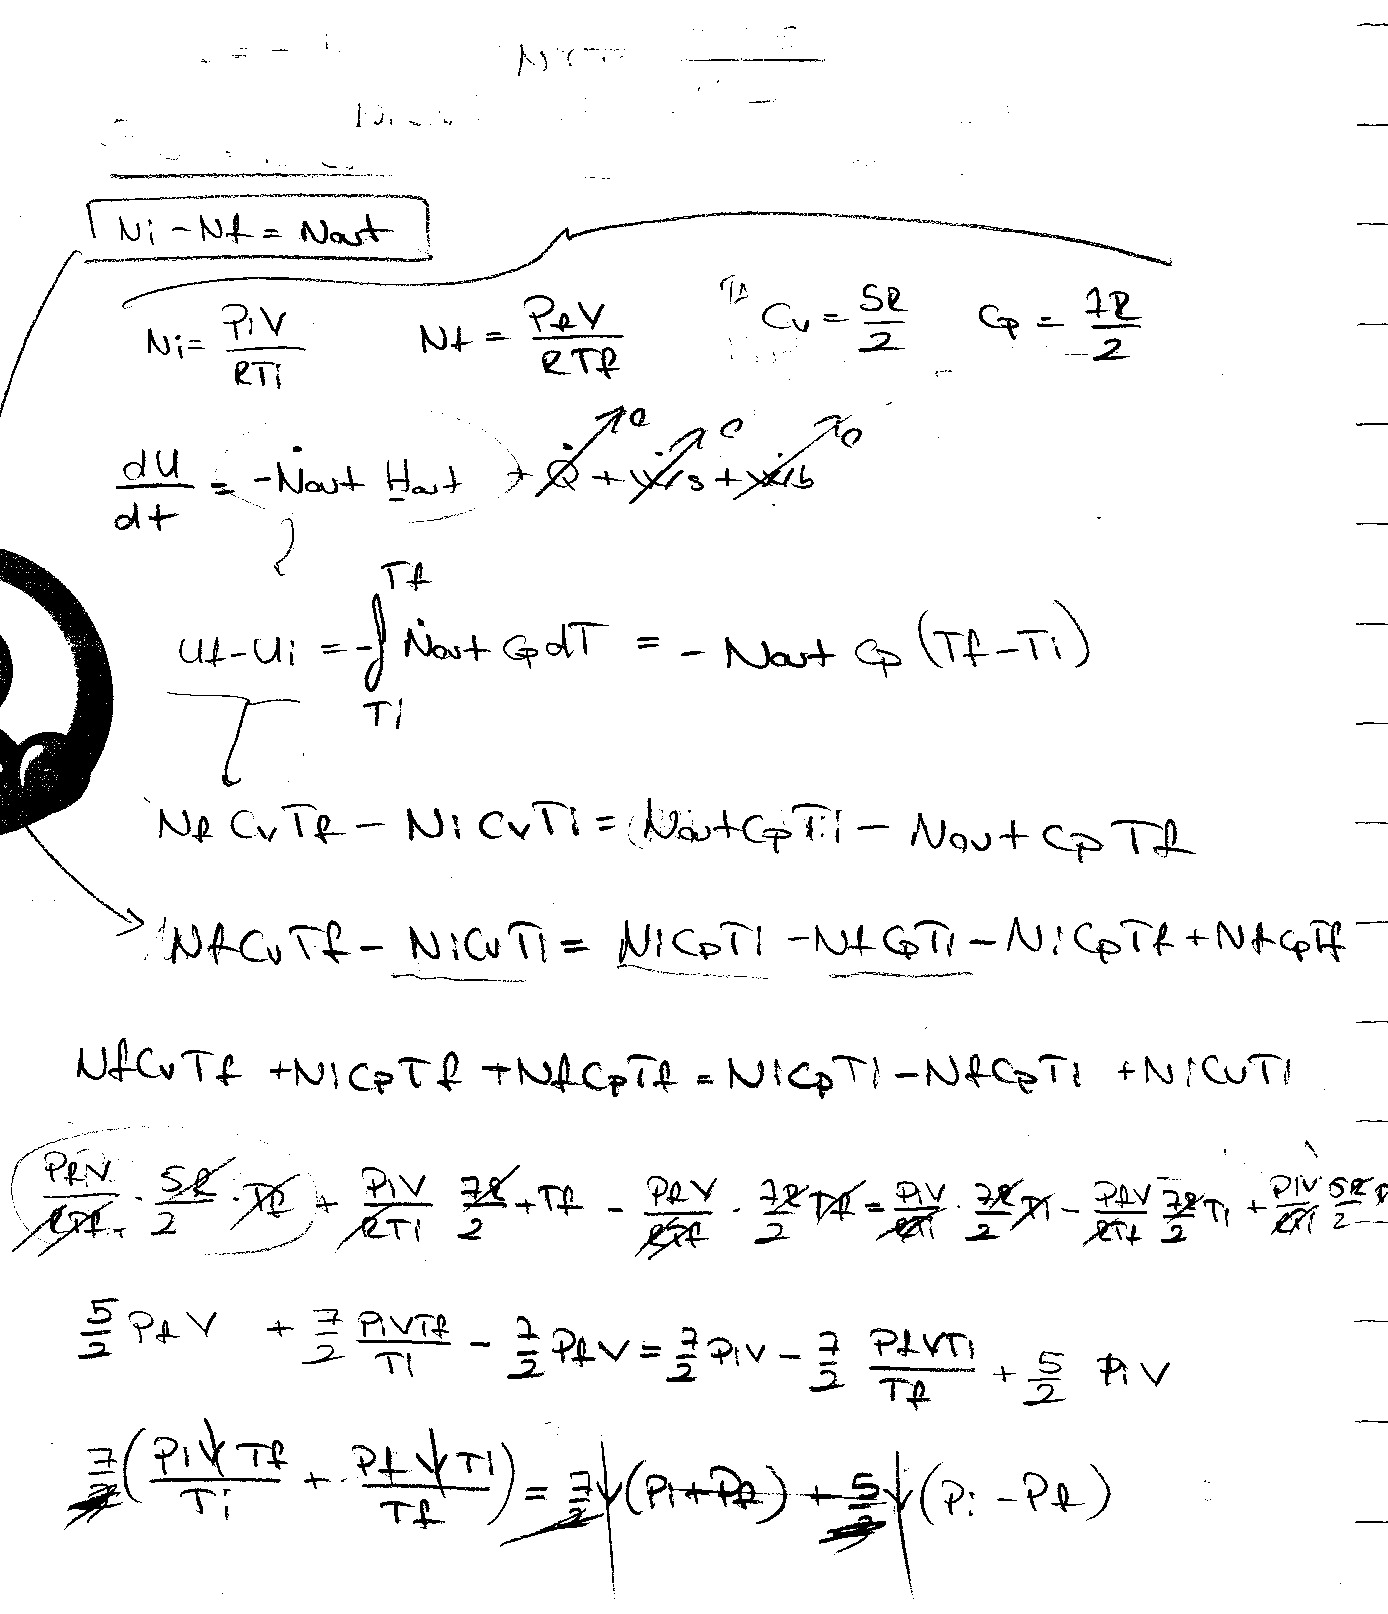 Ni - Nf = Nout
Ni = PiV / RTi    Nf = PfV / RTf    Cv = 5R / 2    Cp = 7R / 2
dU / dt = -Ṅout Hout + Q̇ → 0 + Ẇs → 0 + Ẇb → 0
Uf - Ui = -∫ Ti Tf Ṅout Cp dT = - Nout Cp (Tf - Ti)
Nf Cv Tf - Ni Cv Ti = Nout Cp Ti - Nout Cp Tf
Nf Cv Tf - Ni Cv Ti = Ni Cp Ti - Nf Cp Ti - Ni Cp Tf + Nf Cp Tf
Nf Cv Tf + Ni Cp Tf + Nf Cp Tf = Ni Cp Ti - Nf Cp Ti + Ni Cv Ti
PfV / RTf · 5R / 2 · Tf + PiV / RTi 7R / 2 + Tf - PfV / RTf · 7R / 2 Tf = PiV / RTi · 7R / 2 Ti - PfV / RTf 7R / 2 Ti + PiV / RTi 5R / 2
5/2 Pf V + 7/2 PiVTf / Ti - 7/2 Pf V = 7/2 Pi V - 7/2 PfVTi / Tf + 5/2 Pi V
7/2 (PiV Tf / Ti + PfV Ti / Tf) = 7/2 V (Pi + Pf) + 5/2 V (Pi - Pf)